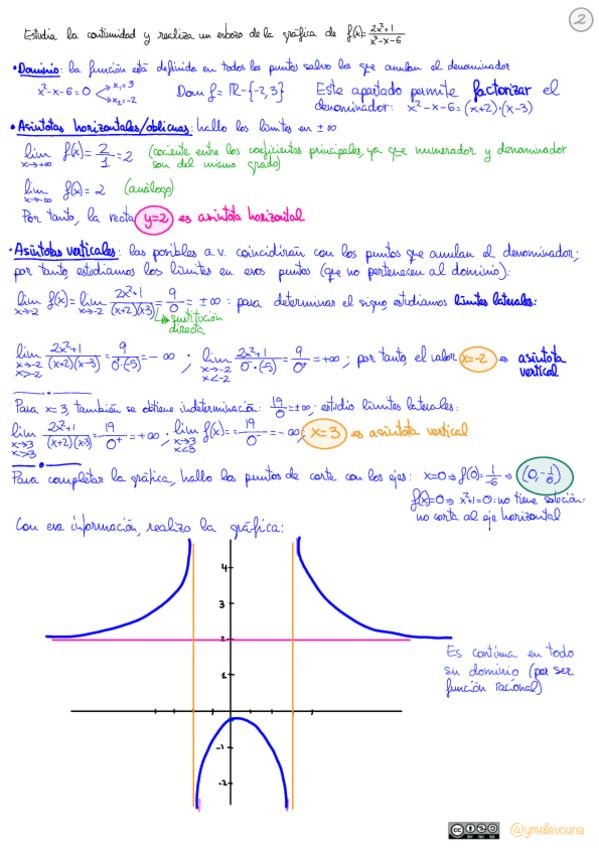 2
Estudia la continuidad y realiza un esbozo de la gráfica de f(x)=(2x²+1)/(x²-x-6)
• Dominio: la función está definida en todos los puntos salvo los que anulan el denominador
x²-x-6=0 x₁=3 x₂=-2 Dom f = ℝ-{-2,3} Este apartado permite factorizar el
denominador: x²-x-6=(x+2)·(x-3)
• Asíntotas horizontales/oblicuas: hallo los límites en ±∞
lim x→+∞ f(x)=2/1=2 (cociente entre los coeficientes principales, ya que numerador y denominador
son del mismo grado)
lim x→-∞ f(x)=2 (análogo)
Por tanto, la recta y=2 es asíntota horizontal
• Asíntotas verticales: las posibles a.v. coincidirán con los puntos que anulan el denominador;
por tanto, estudiamos los límites en esos puntos (que no pertenecen al dominio):
lim x→-2 f(x)=lim x→-2 (2x²+1)/((x+2)(x-3))=9/0=±∞: para determinar el signo, estudiamos límites laterales:
↳ sustitución
directa
lim x→-2 x>-2 (2x²+1)/((x+2)(x-3))=9/(0·(-5))=-∞ ; lim x→-2 x<-2 (2x²+1)/((x+2)(x-3))=9/0⁺=+∞; por tanto, el valor x=-2 es asíntota
vertical
Para x=3, también se obtiene indeterminación: 19/0=±∞; estudio límites laterales:
lim x→3 x>3 (2x²+1)/((x+2)(x-3))=19/0⁺=+∞; lim x→3 x<3 f(x)=19/0⁻=-∞; x=3 es asíntota vertical
Para completar la gráfica, hallo los puntos de corte con los ejes: x=0⇒f(0)=1/-6⇒(0,-1/6)
f(x)=0⇒x²+1=0: no tiene solución:
no corta al eje horizontal
Con esa información, realizo la gráfica:
4
3
2
1
-1
-2
Es continua en todo
su dominio (por ser
función racional)
cc BY NC SA @ymelavouna